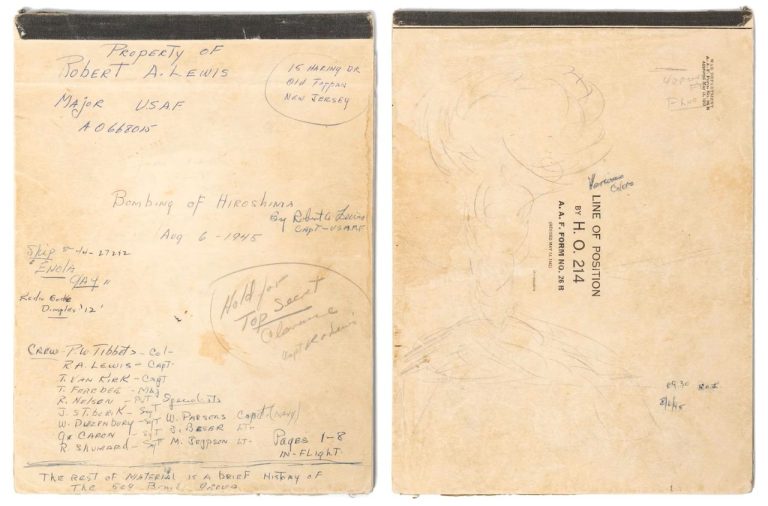 Property of
Robert A. Lewis
15 Haring Dr
Old Tappan
New Jersey
Major USAF
A0668015
Bombing of Hiroshima
By Robert A Lewis
Capt-USAAF
Aug 6-1945
Ship 5-44-27212
"Enola
Gay"
Radio Code
Dimples '12'
Hold for
Top Secret
Clearance
Capt R A Lewis
Crew-P.W Tibbets-Col-
R.A. Lewis-Capt
T. Van Kirk-Capt
T. Ferebee-Maj
R. Nelson-Pvt Specialists
J. Stiborik-Sgt W. Parsons Capt(navy)
W. Duzenbury-Sgt J. Beser Lt
G. Caron-Sgt M. Jeppson Lt-
R Shumard-Sgt
Pages 1-8
in-flight
The rest of material is a brief history of
The 509 Bomb Group
WAR DEPARTMENT
A. A. F. Form No. 26 B
Various
Colors
LINE OF POSITION
BY H. O. 214
A. A. F. FORM NO. 26 B
(REVISED MAY 13, 1942)
0930
8/6/45